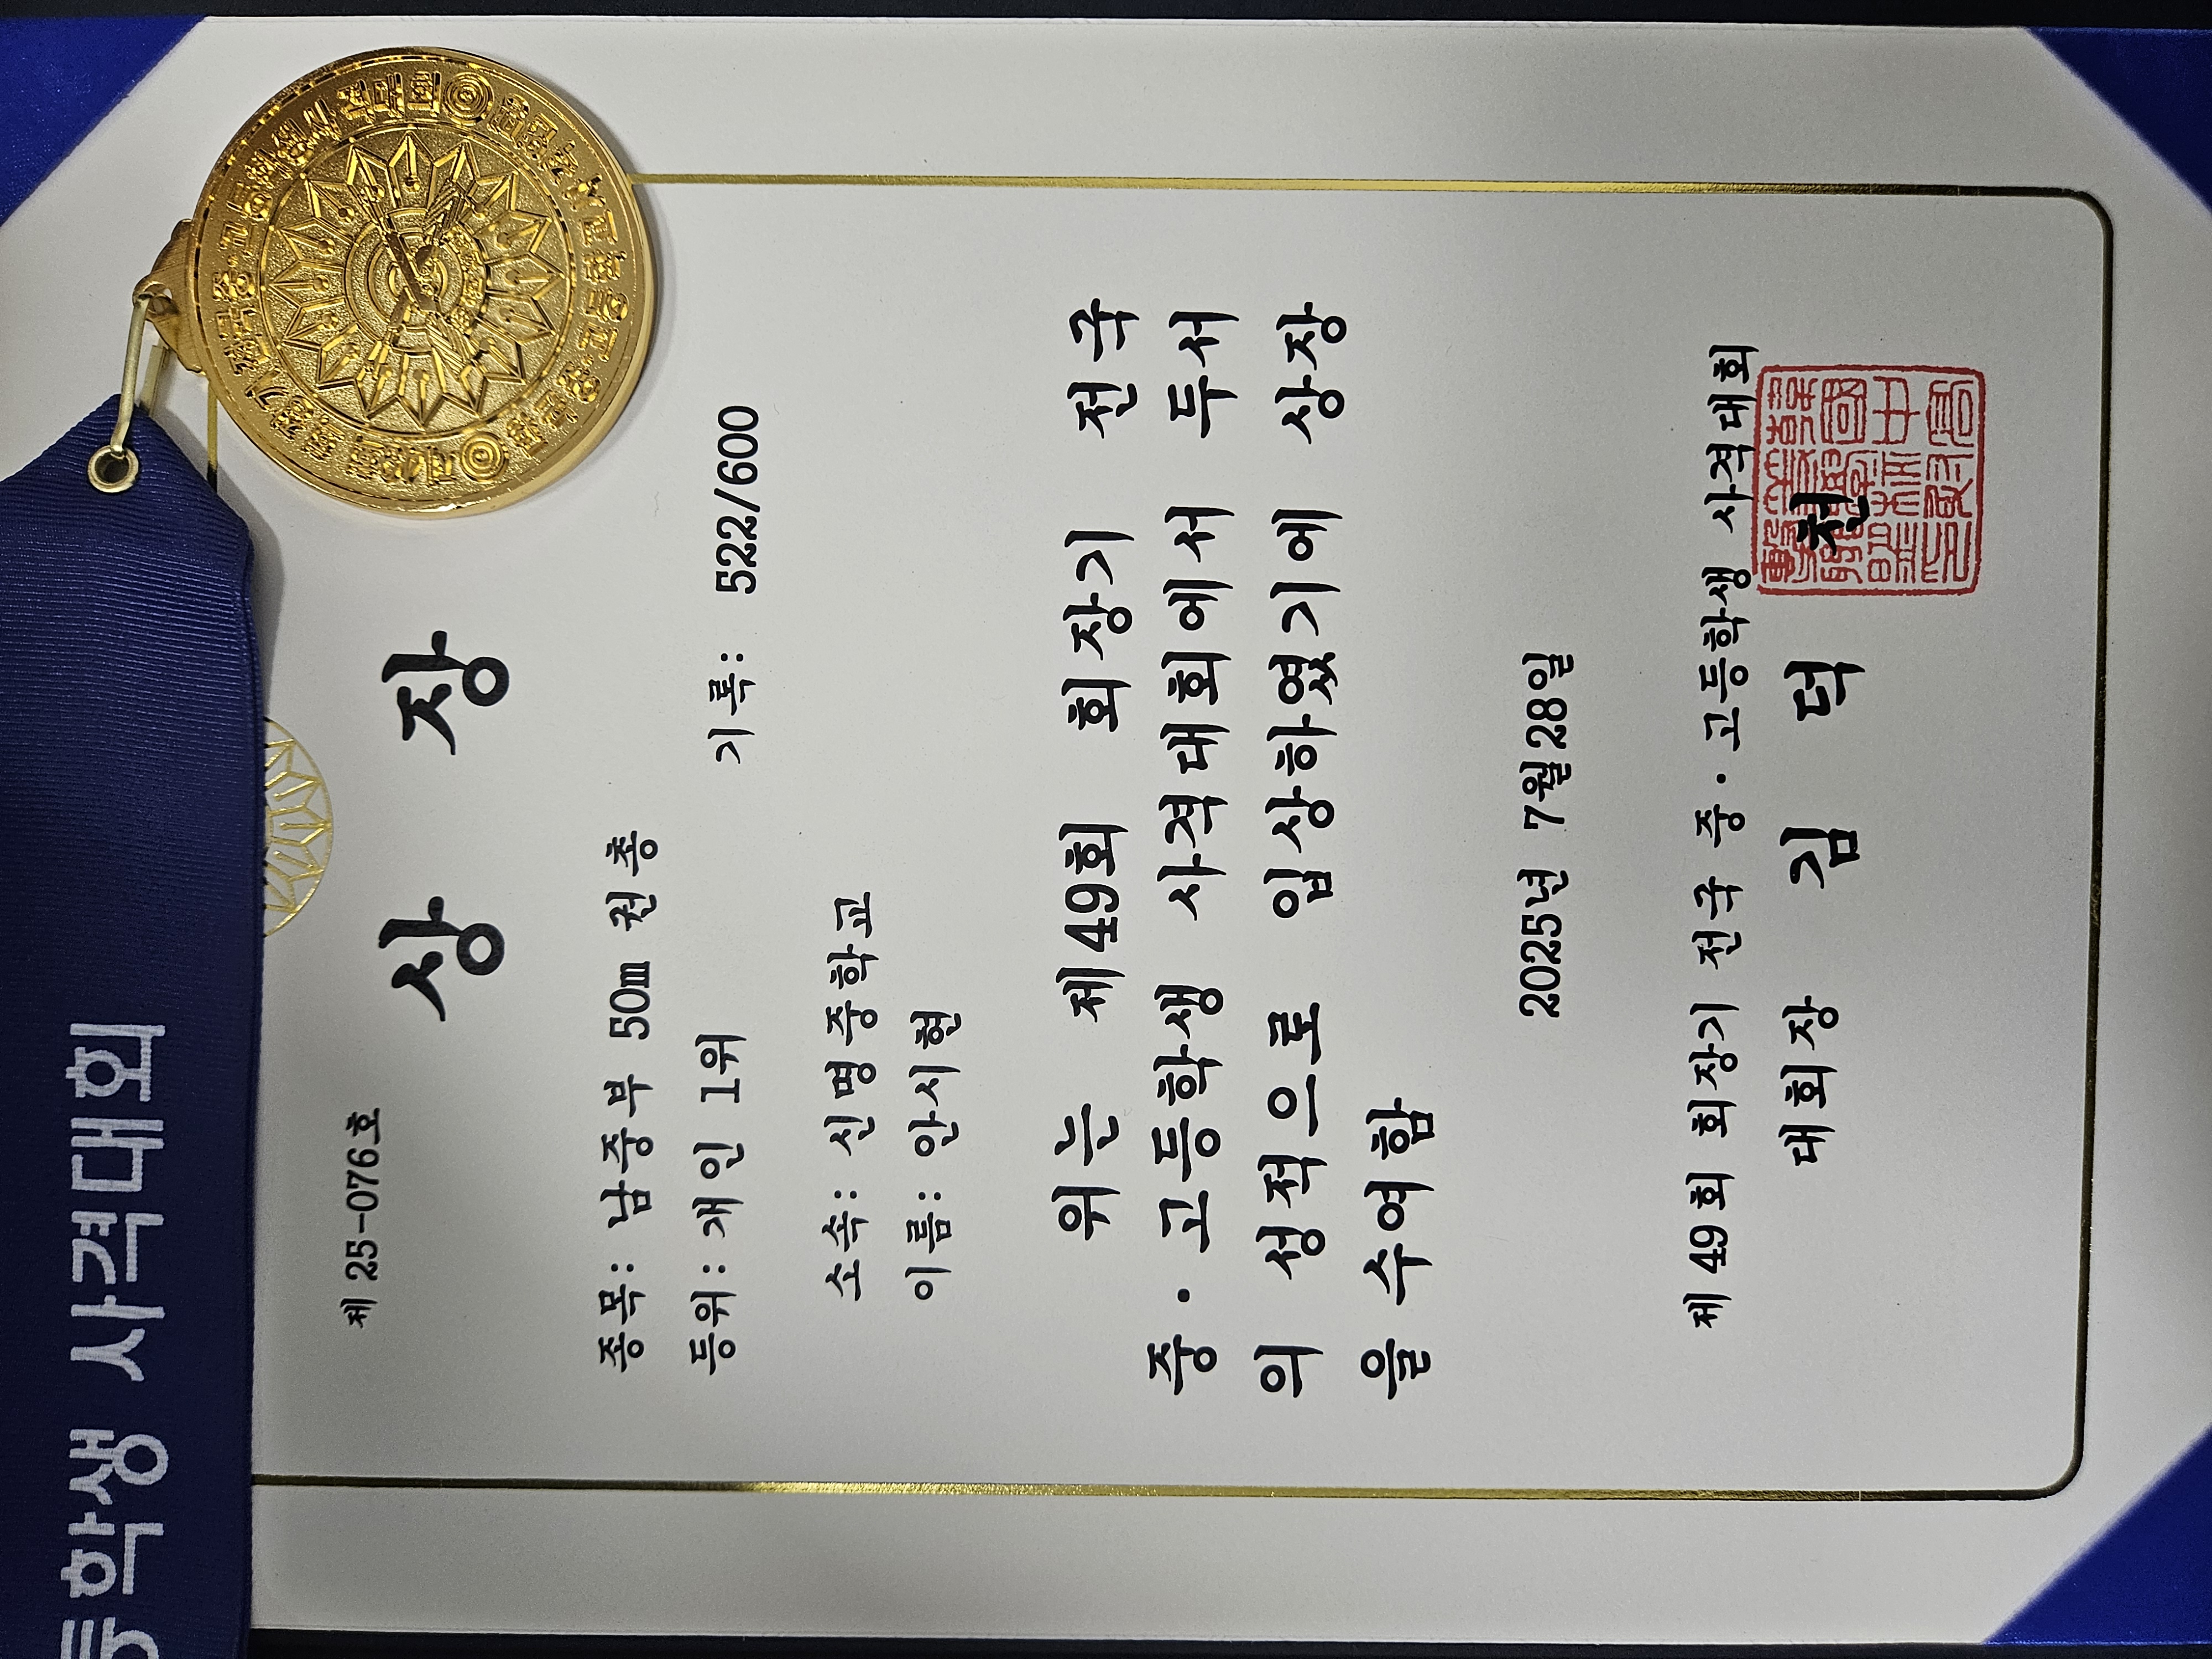 등학생 사격대회
제 25-076호
상 장
종목: 남중부 50m 권총
등위: 개인 1위 기록: 522/600
소속: 신명중학교
이름: 안시현
위는 제49회 회장기 전국
중·고등학생 사격대회에서 두서
의 성적으로 입상하였기에 상장
을 수여함
2025년 7월28일
제 49회 회장기 전국 중·고등학생 사격대회
대회장 김 덕 천